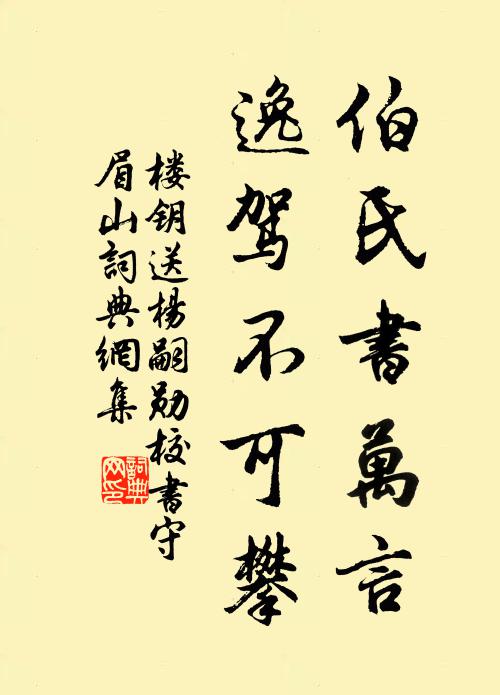 伯氏書萬言
逸驾不可攀
楼钥送楊嗣勋校書守
眉山詞典網集
詞典网印